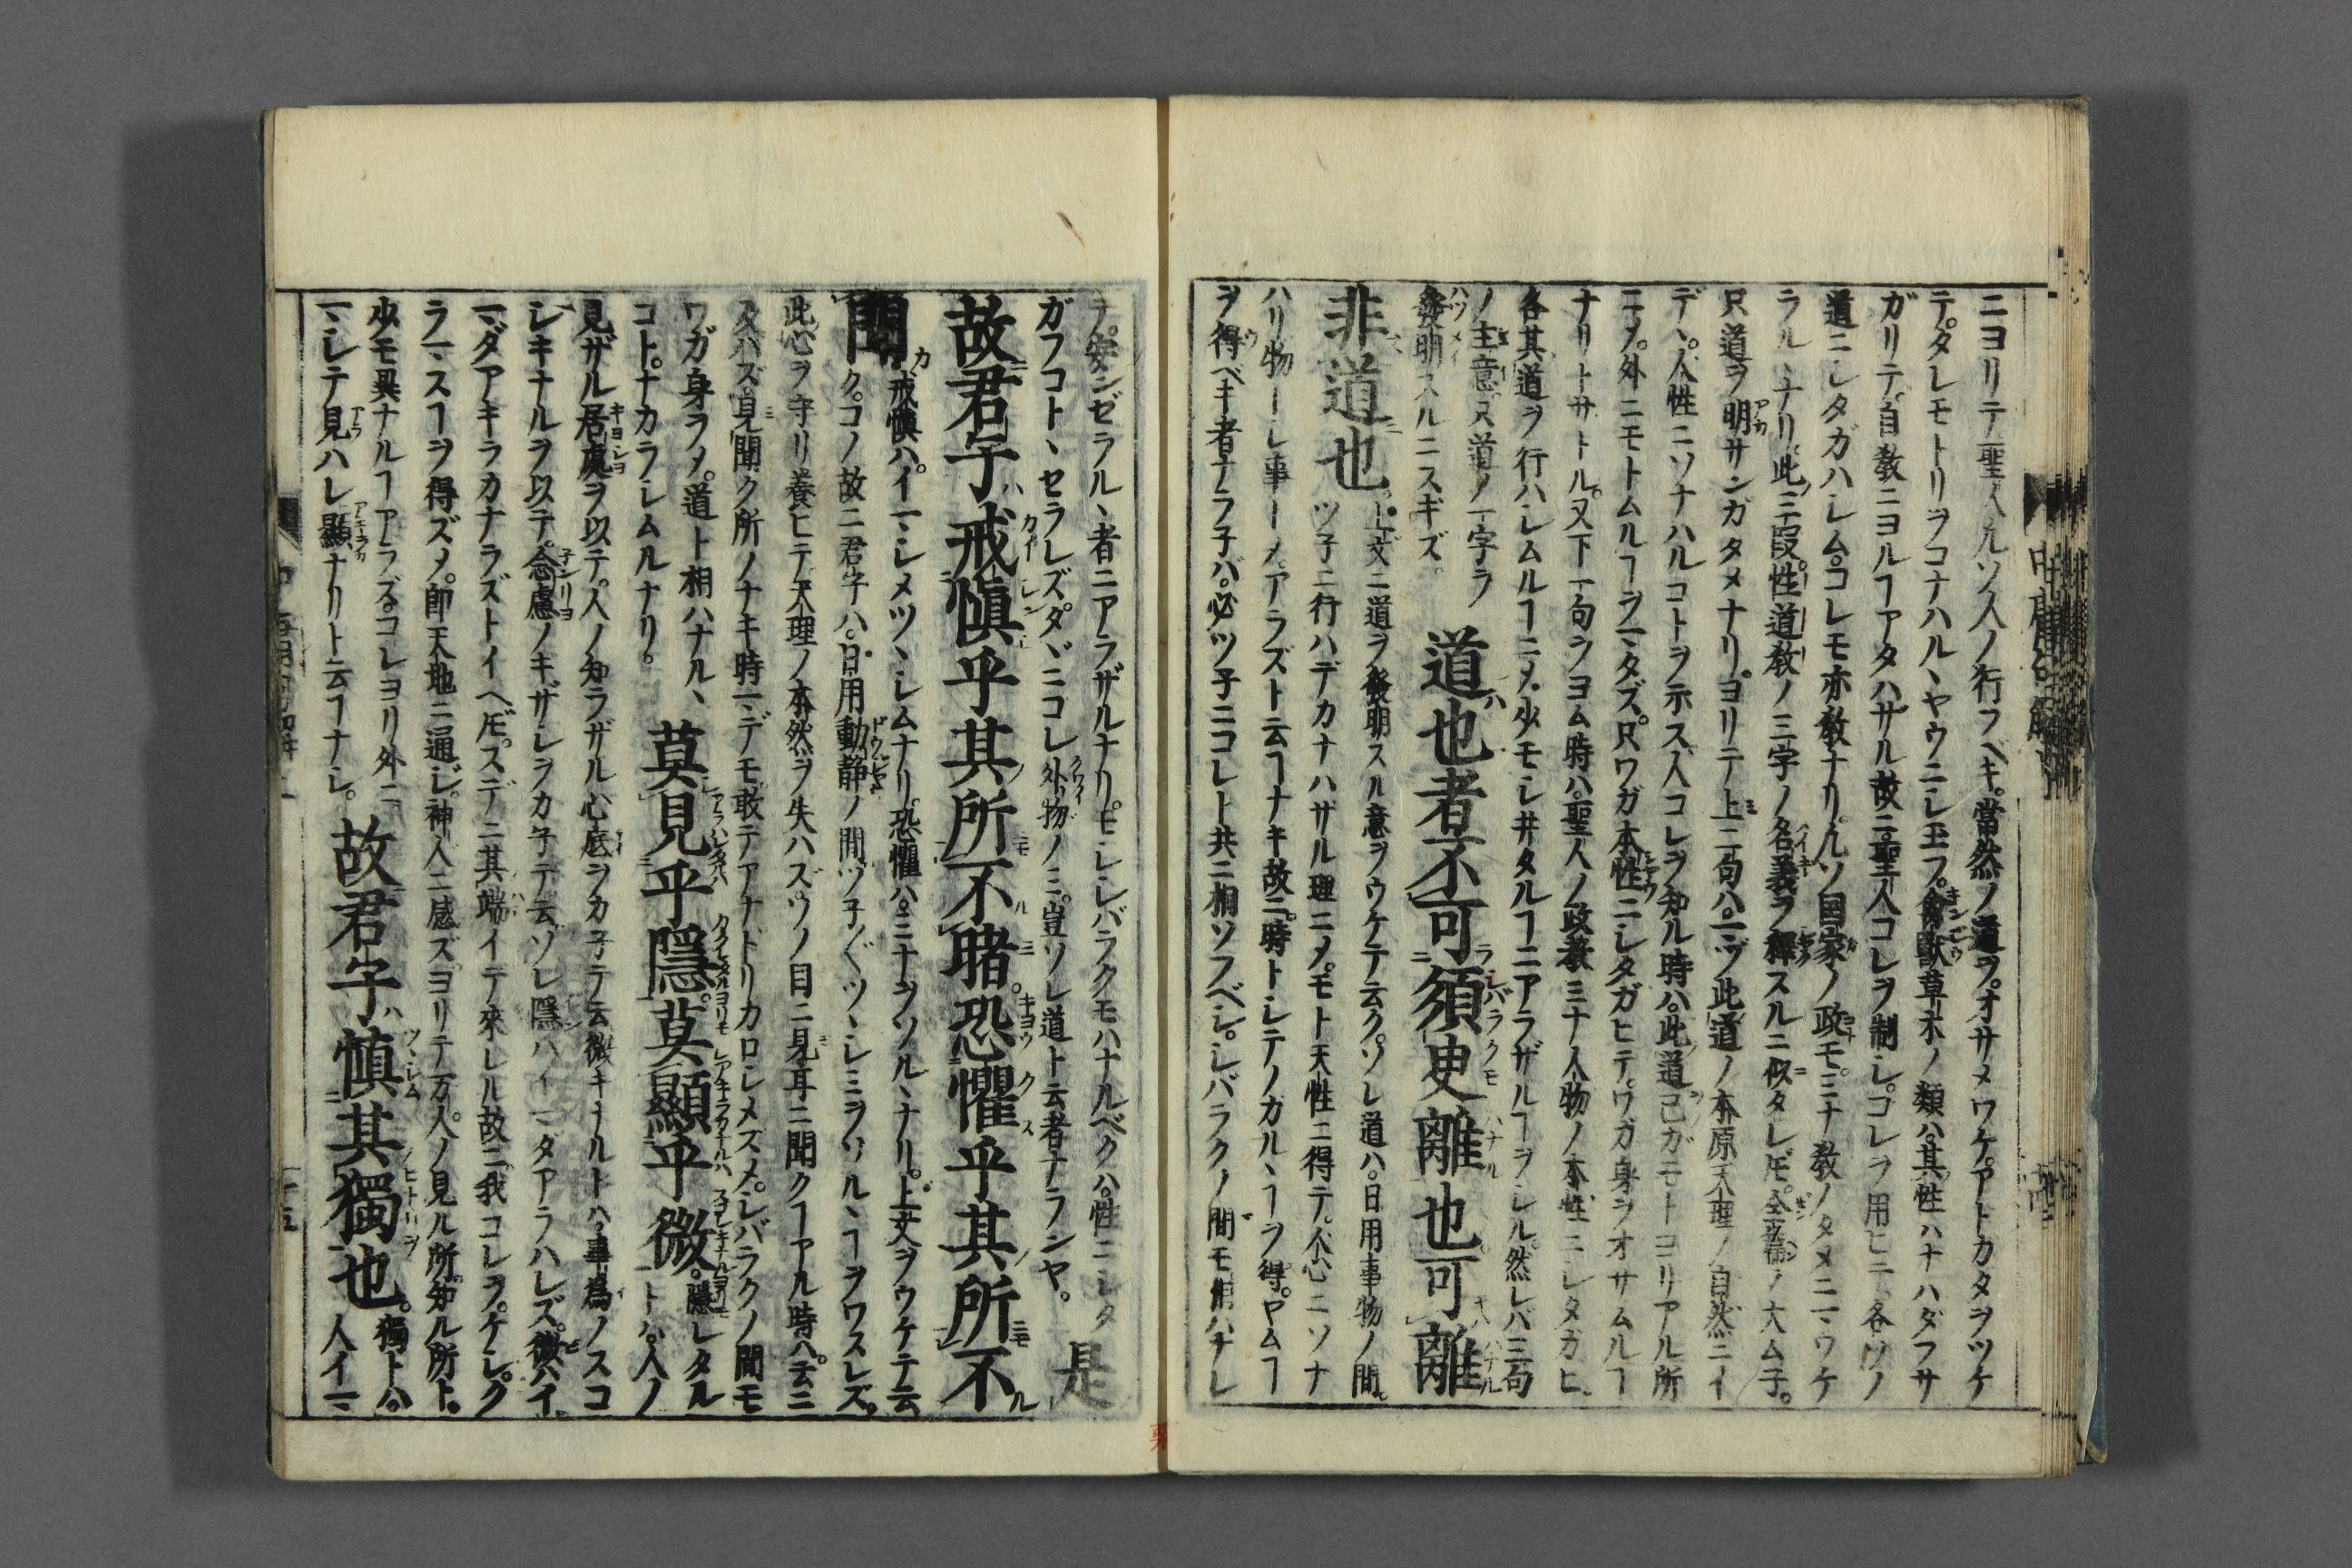 ニヨリテ聖人凡ソ人ノ行フベキ。當然ノ道ヲ。オサメワケ。アトカタヲツケ
テ。タレモトリヲコナハルヽヤウニシ玉フ。禽獣草木ノ類ハ。其性ハナハダフサ
ガリテ。自教ニヨルヿアタハザル故ニ聖人コレヲ制シ。コレヲ用ヒテ各ソノ
道ニシタガハシム。コレモ亦教ナリ。凡ソ国家ノ政モ。ミナ教ノタメニマウケ
ラルヽナリ。此三段。性道教ノ三字ノ名義ヲ釋スルニ似タレ𪜈。全篇ノ大ムネ。
只道ヲ明サンガタメナリ。ヨリテ上二句ハ。マヅ此道ノ本原天理ノ自然ニイ
デヽ。人性ニソナハルコトヲ示ス。人コレヲ知ル時ハ。此道己ガモトヨリアル所
ニメ。外ニモトムルヿヲマタズ。只ワガ本性ニシタガヒテ。ワガ身ヲオサムルヿ
ナリトサトル。又下一句ヲヨム時ハ。聖人ノ政教ミナ人物ノ本性ニシタガヒ。
各其道ヲ行ハシムルヿニメ。少モシ井タルヿニアラザルヿヲシル。然レバ三句
ノ主意。只道ノ一字ヲ
發明スルニスギズ。 道也者不可須臾離也可離
非道也。上文ニ道ヲ發明スル意ヲウケテ云ク。ソレ道ハ。日用事物ノ間。
ツ子ニ行ハデカナハザル理ニメ。モト天性ニ得テ。人心ニソナ
ハリ物トシ事トメ。アラズト云ヿナキ故ニ。時トシテノカルヽヿヲ得。ヤムヿ
ヲ得ベキ者ナラ子バ。必ツ子ニコレト共ニ相ソフベシ。シバラクノ間モ
テ。安ンゼラルヽ者ニアラザルナリ。モシシバラクモハナルベクハ。性ニシタ
ガフコトヽセラレズ。タヾニコレ外物ノミ。豈ソレ道ト云者ナランヤ。 是
故君子戒愼乎其所不睹。恐懼乎其所不
聞 戒愼ハ。イマシメツヽシムナリ。恐懼ハ。ミナヲソルヽナリ。上文ヲウケテ云
ク。コノ故ニ君子ハ。日用動静ノ間。ツ子〱ツヽシミヲソルヽヿヲワスレズ。
此心ヲ守リ養ヒテ。天理ノ本然ヲ失ハズ。ソノ目ニ見耳ニ聞クヿアル時ハ。云ニ
及ハズ。見聞ク所ノナキ時マデモ。敢テアナドリカロシメズメ。シバラクノ間モ
ワガ身ヲメ。道ト相ハナルヽ
コト。ナカラシムルナリ。 莫見乎隱。莫顯乎微。隱レタル
トハ。人ノ
見ザル居處ヲ以テ。人ノ知ラザル心底ヲカ子テ云。微キナルトハ。事為ノスコ
シキナルヲ以テ。念慮ノキザシヲカ子テ云。ソレ隱ハイマダアラハレズ。微ハイ
マダアキラカナラズトイヘ𪜈。スデニ其端イテ來レル故ニ。我コレヲ。ケシ。ク
ラマスヿヲ得ズメ。即天地ニ通ジ。神人ニ感ズ。ヨリテ万人ノ見ル所知ル所ト。
少モ異ナルヿアラズ。コレヨリ外ニ。
マシテ見ハレ顯ナリト云ヿナシ。 故君子愼其獨也。獨トハ。
人イマ